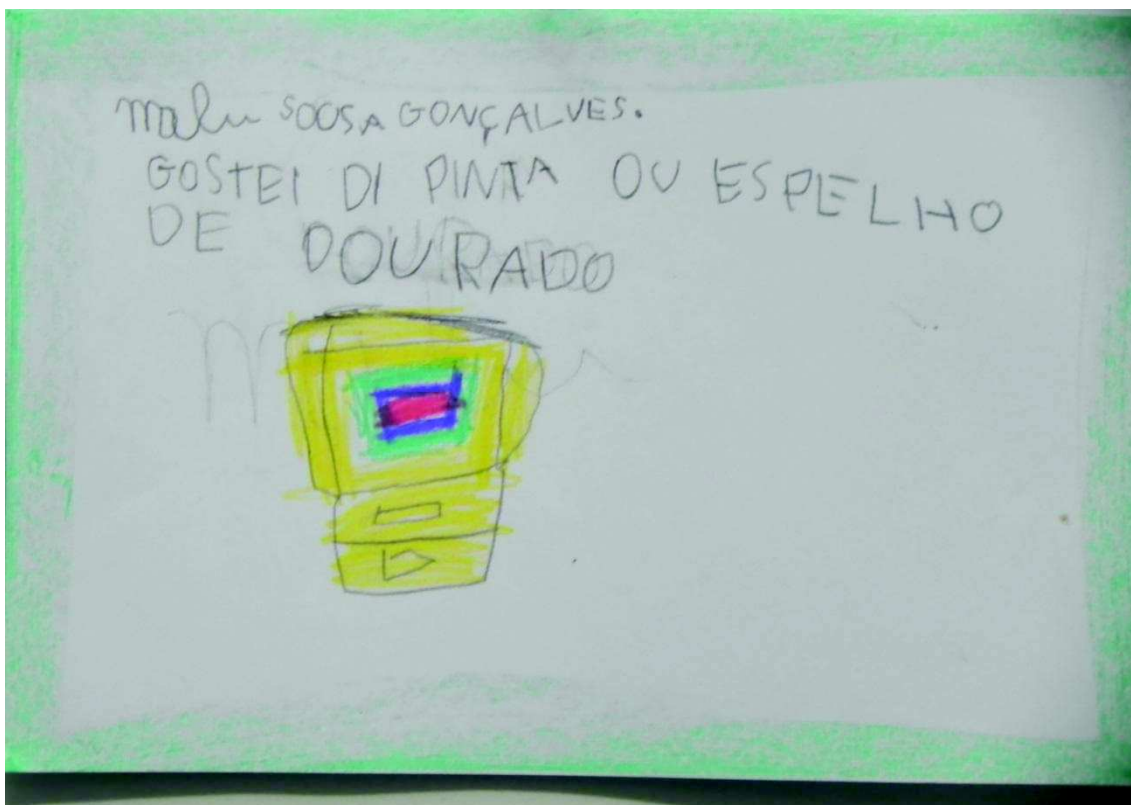 Malu SOUSA GONÇALVES.
GOSTEI DI PINTA OU ESPELHO
DE DOURADO